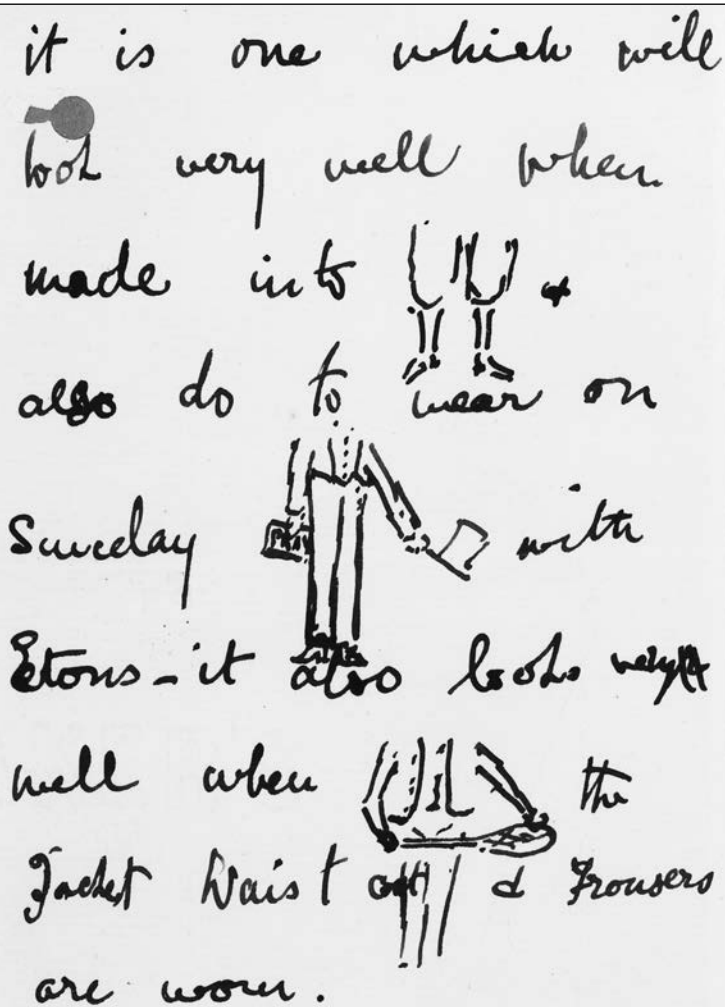 it is one which will
look very well when
made into &
also do to wear on
Sunday with
Etons - it also looks very
well when the
Jacket Waist coat & Trousers
are worn.